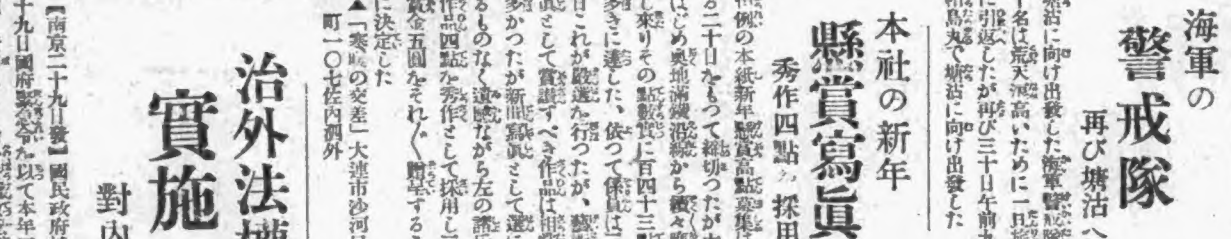 海軍の
警戒隊
再び塘沽へ
塘沽に向け出發した海軍警戒隊
十名は荒天波高いために一旦
に引返したが再び三十日午前九
島丸で塘沽に向け出發した
本社の新年
懸賞寫眞
秀作四點を採用
例の本紙新年懸賞寫眞募集は
る二十日をもつて締切つたが
はじめ奥地滿鐵沿線から續々
し來りその點數實に百四十三
多きに達した、依つて係員は
日これが嚴選を行つたが、藝
眞として賞讃すべき作品は相
多かつたが新聞寫眞として選
るものなく遺憾ながら左の諸
作品四點を秀作として採用し
賞金五圓をそれ〲贈呈する
に決定した
▲「寒 の交差」大連市沙河
町一〇七佐内洞外
治外法權
實施
對内
【南京二十九日發】國民政府
十九日國府緊急令を以て本年